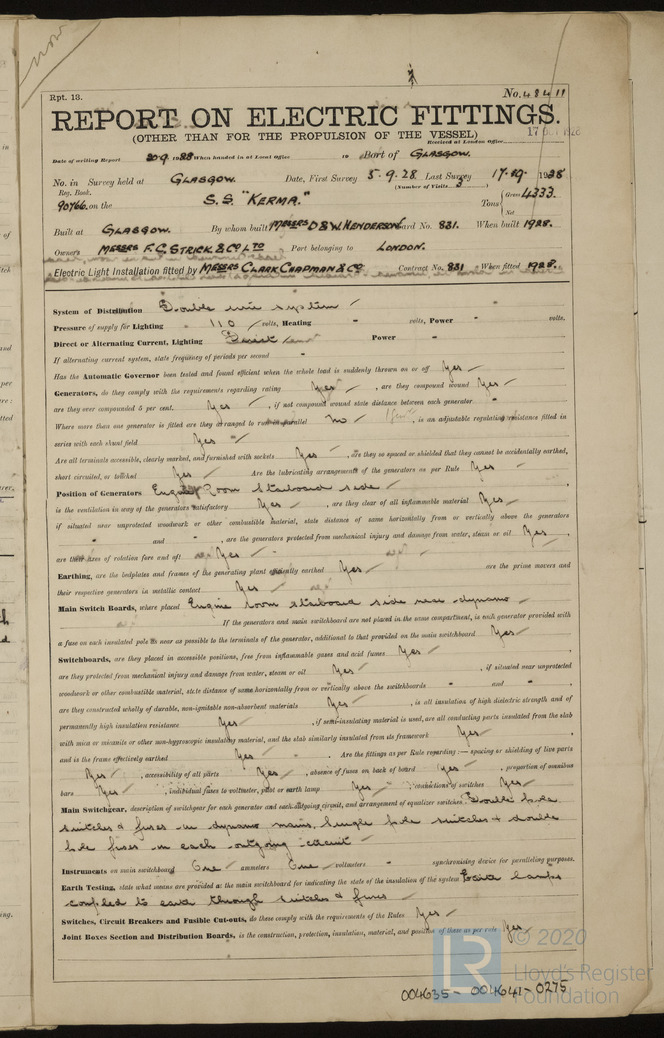 now
Rpt. 13.
No. 48411
REPORT ON ELECTRIC FITTINGS.
(OTHER THAN FOR THE PROPULSION OF THE VESSEL)
Received at London Office
17 1928
Date of writing Report 20 9 1928 When handed in at Local Office 19 Port of GLASGOW.
No. in Survey held at GLASGOW. Date, First Survey 5-9-28 Last Survey 17-10-1928
Reg. Book. (Number of Visits 3)
90766 on the S.S. "KERMA." Tons Gross 4333. Net
Built at GLASGOW. By whom built MESSRS D & W. HENDERSON Yard No. 831. When built 1928.
Owners MESSRS F. C. STRICK & CO LTD Port belonging to LONDON.
Electric Light Installation fitted by MESSRS CLARK CHAPMAN & CO. Contract No. 831 When fitted 1928.
System of Distribution Double wire system
Pressure of supply for Lighting 110 volts, Heating " volts, Power " volts.
Direct or Alternating Current, Lighting Direct Power "
If alternating current system, state frequency of periods per second "
Has the Automatic Governor been tested and found efficient when the whole load is suddenly thrown on or off Yes
Generators, do they comply with the requirements regarding rating Yes, are they compound wound Yes
are they over compounded 5 per cent. Yes, if not compound wound state distance between each generator "
Where more than one generator is fitted are they arranged to run in parallel no, is an adjustable regulating resistance fitted in
series with each shunt field Yes
Are all terminals accessible, clearly marked, and furnished with sockets Yes, are they so spaced or shielded that they cannot be accidentally earthed,
short circuited, or touched Yes Are the lubricating arrangements of the generators as per Rule Yes
Position of Generators Engine Room starboard side
is the ventilation in way of the generators satisfactory Yes, are they clear of all inflammable material Yes
if situated near unprotected woodwork or other combustible material, state distance of same horizontally from or vertically above the generators
" and ", are the generators protected from mechanical injury and damage from water, steam or oil Yes
are their axes of rotation fore and aft Yes
Earthing, are the bedplates and frames of the generating plant efficiently earthed Yes are the prime movers and
their respective generators in metallic contact Yes
Main Switch Boards, where placed Engine room starboard side near dynamo
If the generators and main switchboard are not placed in the same compartment, is each generator provided with
a fuse on each insulated pole as near as possible to the terminals of the generator, additional to that provided on the main switchboard Yes
Switchboards, are they placed in accessible positions, free from inflammable gases and acid fumes Yes
are they protected from mechanical injury and damage from water, steam or oil Yes, if situated near unprotected
woodwork or other combustible material, state distance of same horizontally from or vertically above the switchboards " and "
are they constructed wholly of durable, non-ignitable non-absorbent materials Yes, is all insulation of high dielectric strength and of
permanently high insulation resistance Yes, if semi-insulating material is used, are all conducting parts insulated from the slab
with mica or micanite or other non-hygroscopic insulating material, and the slab similarly insulated from its framework Yes
and is the frame effectively earthed Yes. Are the fittings as per Rule regarding:— spacing or shielding of live parts
Yes, accessibility of all parts Yes, absence of fuses on back of board Yes, proportion of omnibus
bars Yes, individual fuses to voltmeter, pilot or earth lamp Yes connections of switches Yes
Main Switchgear, description of switchgear for each generator and each outgoing circuit, and arrangement of equalizer switches. Double pole
switches & fuses on dynamo mains, single pole switches & double
pole fuses on each outgoing circuit
Instruments on main switchboard One ammeters One voltmeters " synchronising device for paralleling purposes.
Earth Testing, state what means are provided at the main switchboard for indicating the state of the insulation of the system Earth lamps
coupled to earth through switches & fuses
Switches, Circuit Breakers and Fusible Cut-outs, do these comply with the requirements of the Rules Yes
Joint Boxes Section and Distribution Boards, is the construction, protection, insulation, material, and position of these as per rule Yes
© 2020
Lloyd's Register
Foundation
004635-004641-0275